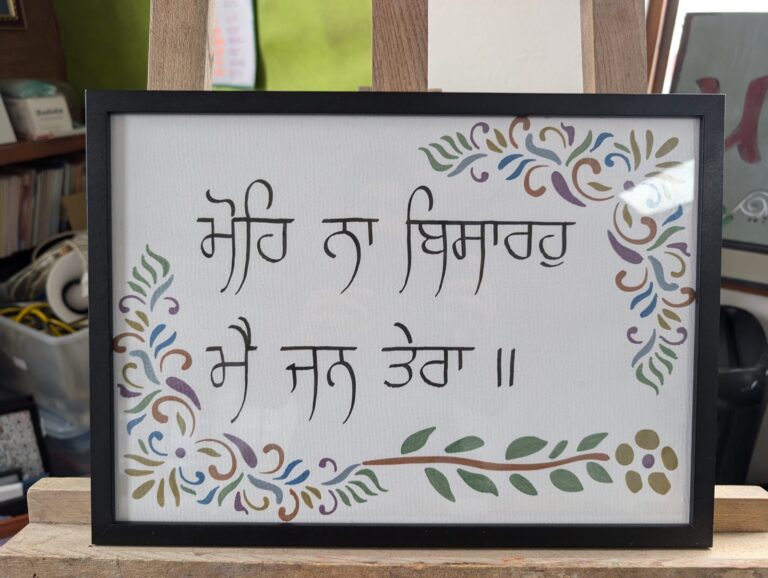 ਮੋਹਿ ਨਾ ਬਿਸਾਰਹੁ
ਮੈ ਜਨ ਤੇਰਾ ॥